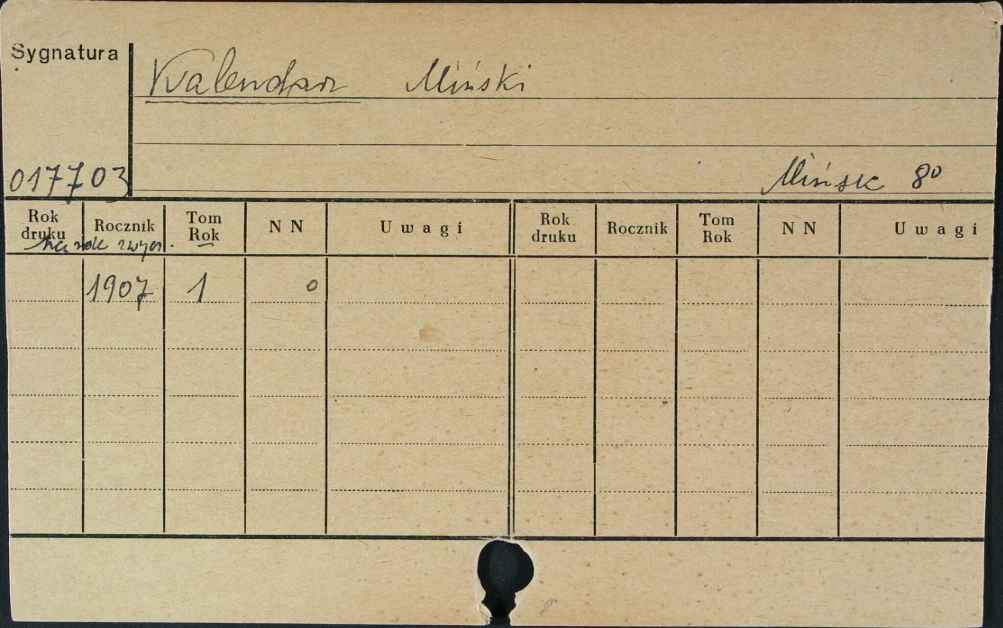 Sygnatura
Kalendarz Miński
017703
Mińsk 8⁰
Rok druku Rocznik Tom Rok N N Uwagi Rok druku Rocznik Tom Rok N N Uwagi
Na rok zwycz.
1907 1 0